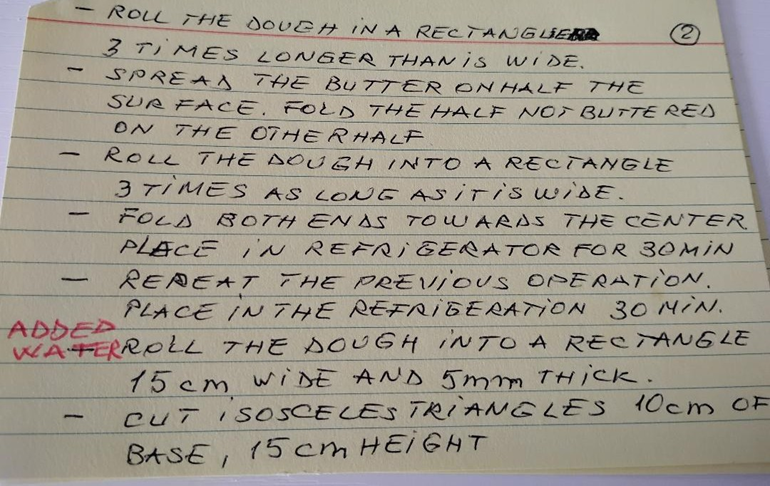 - ROLL THE DOUGH IN A RECTANGLE ②
3 TIMES LONGER THAN IS WIDE.
- SPREAD THE BUTTER ON HALF THE
SURFACE. FOLD THE HALF NOT BUTTERED
ON THE OTHER HALF
- ROLL THE DOUGH INTO A RECTANGLE
3 TIMES AS LONG AS IT IS WIDE.
- FOLD BOTH ENDS TOWARDS THE CENTER
PLACE IN REFRIGERATOR FOR 30 MIN
- REPEAT THE PREVIOUS OPERATION.
PLACE IN THE REFRIGERATION 30 MIN.
ADDED
WATER ROLL THE DOUGH INTO A RECTANGLE
15 cm WIDE AND 5mm THICK.
- CUT ISOSCELES TRIANGLES 10cm OF
BASE, 15 cm HEIGHT